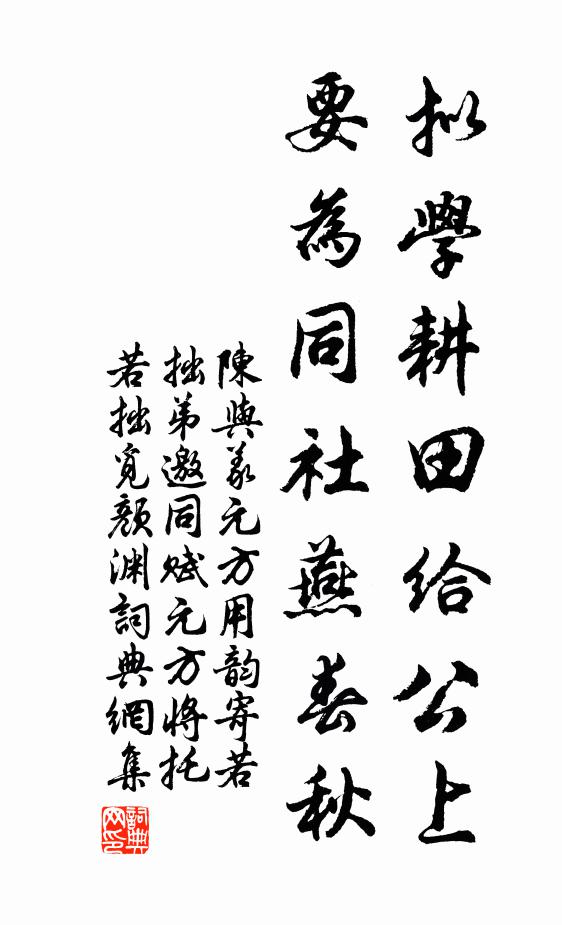 拟學耕田給公上
要為同社燕春秋
陳與義元方用韵寄若
拙弟邀同賦元方將托
若拙覓顏淵詞典網集
詞典网印